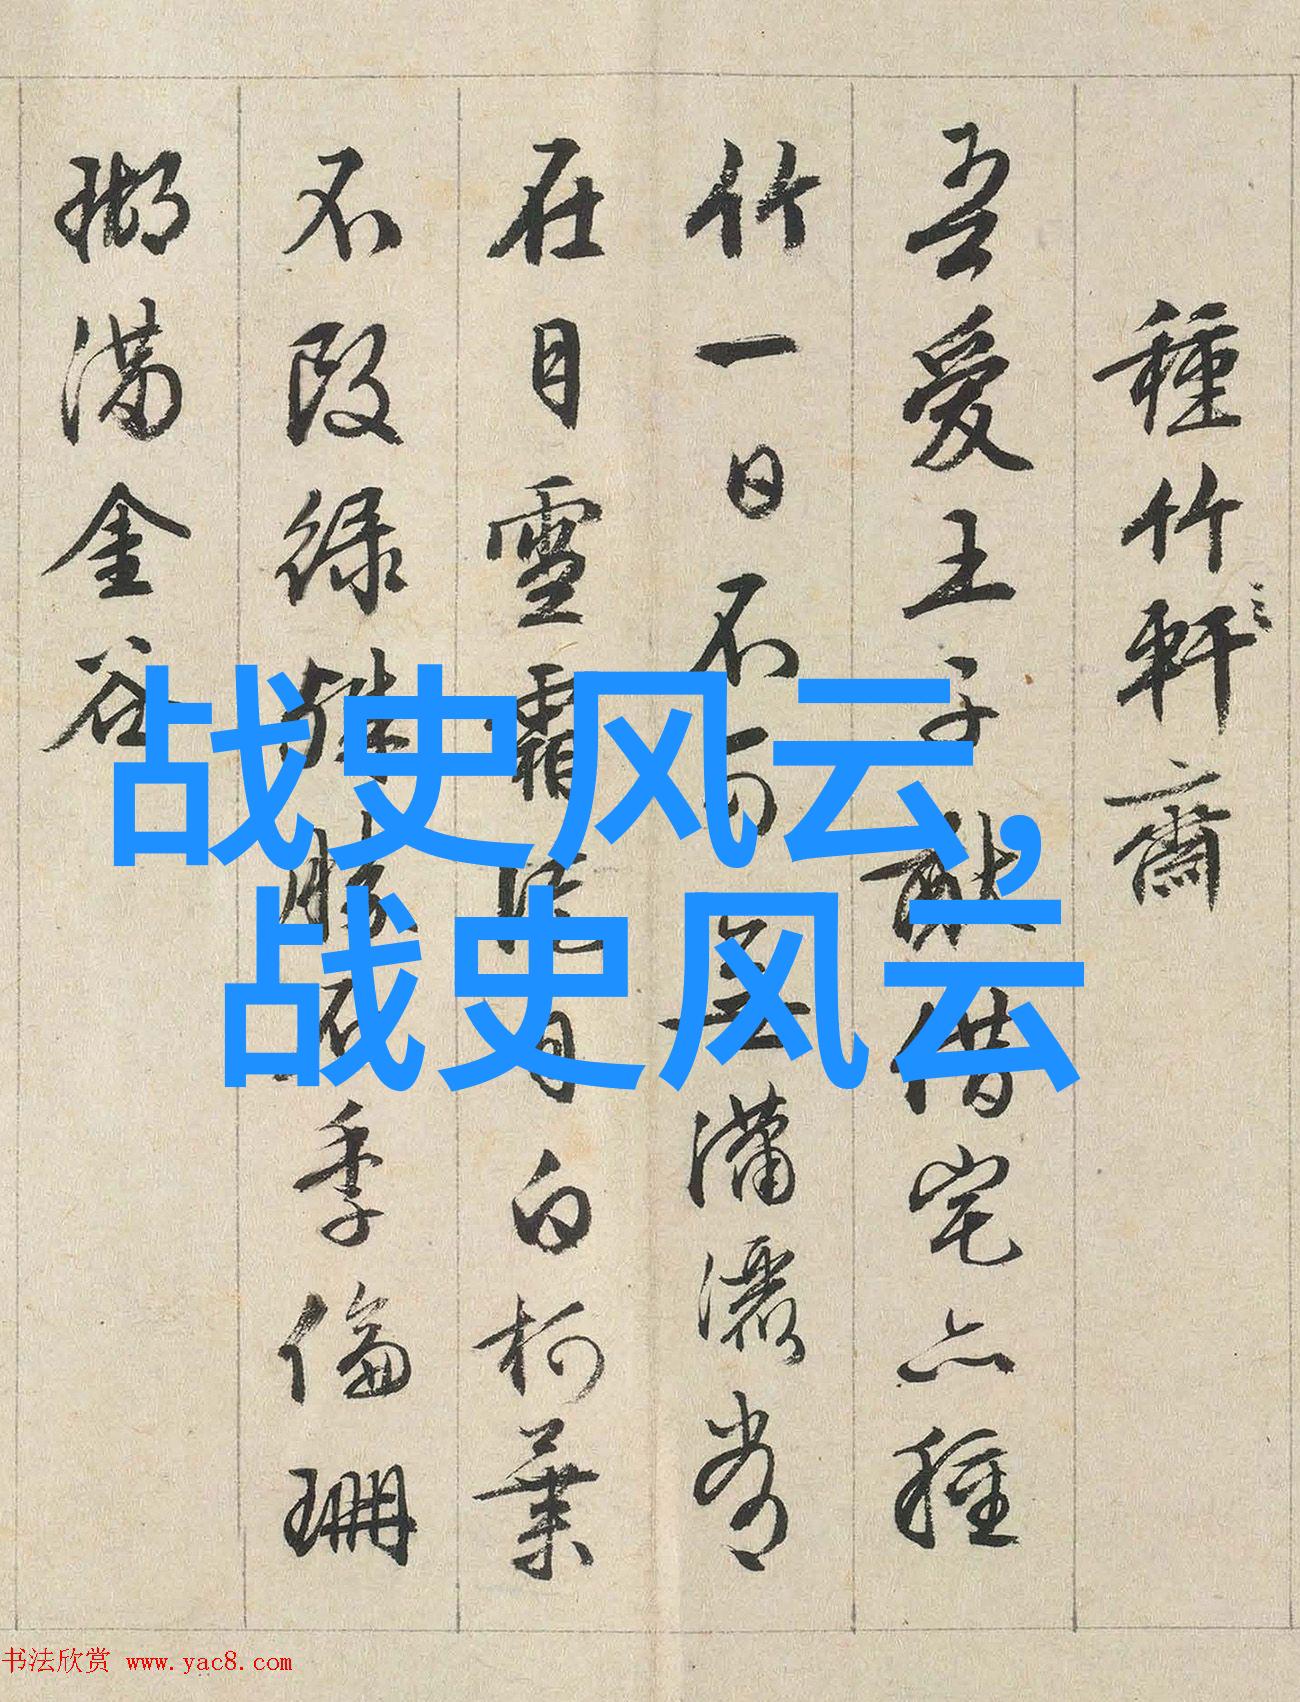 種竹軒齋
吾愛王子猷借宅亦種
竹一日不可無瀟灑常
在目雪霜徒自白柯葉
不改綠殊勝石季倫珊
瑚滿金谷
战史风云,
战史风云
书法欣赏 www.yac8.com